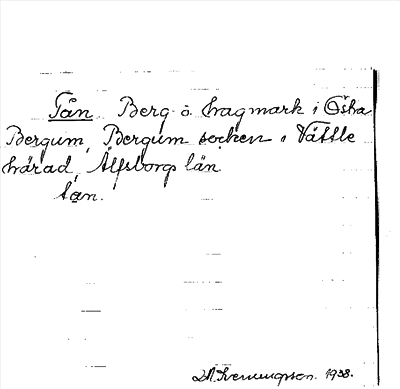 Tån Berg o. hagmark i Östra
Bergum, Bergum socken i Vättle
härad, Älfsborgs län
tån.
1938.